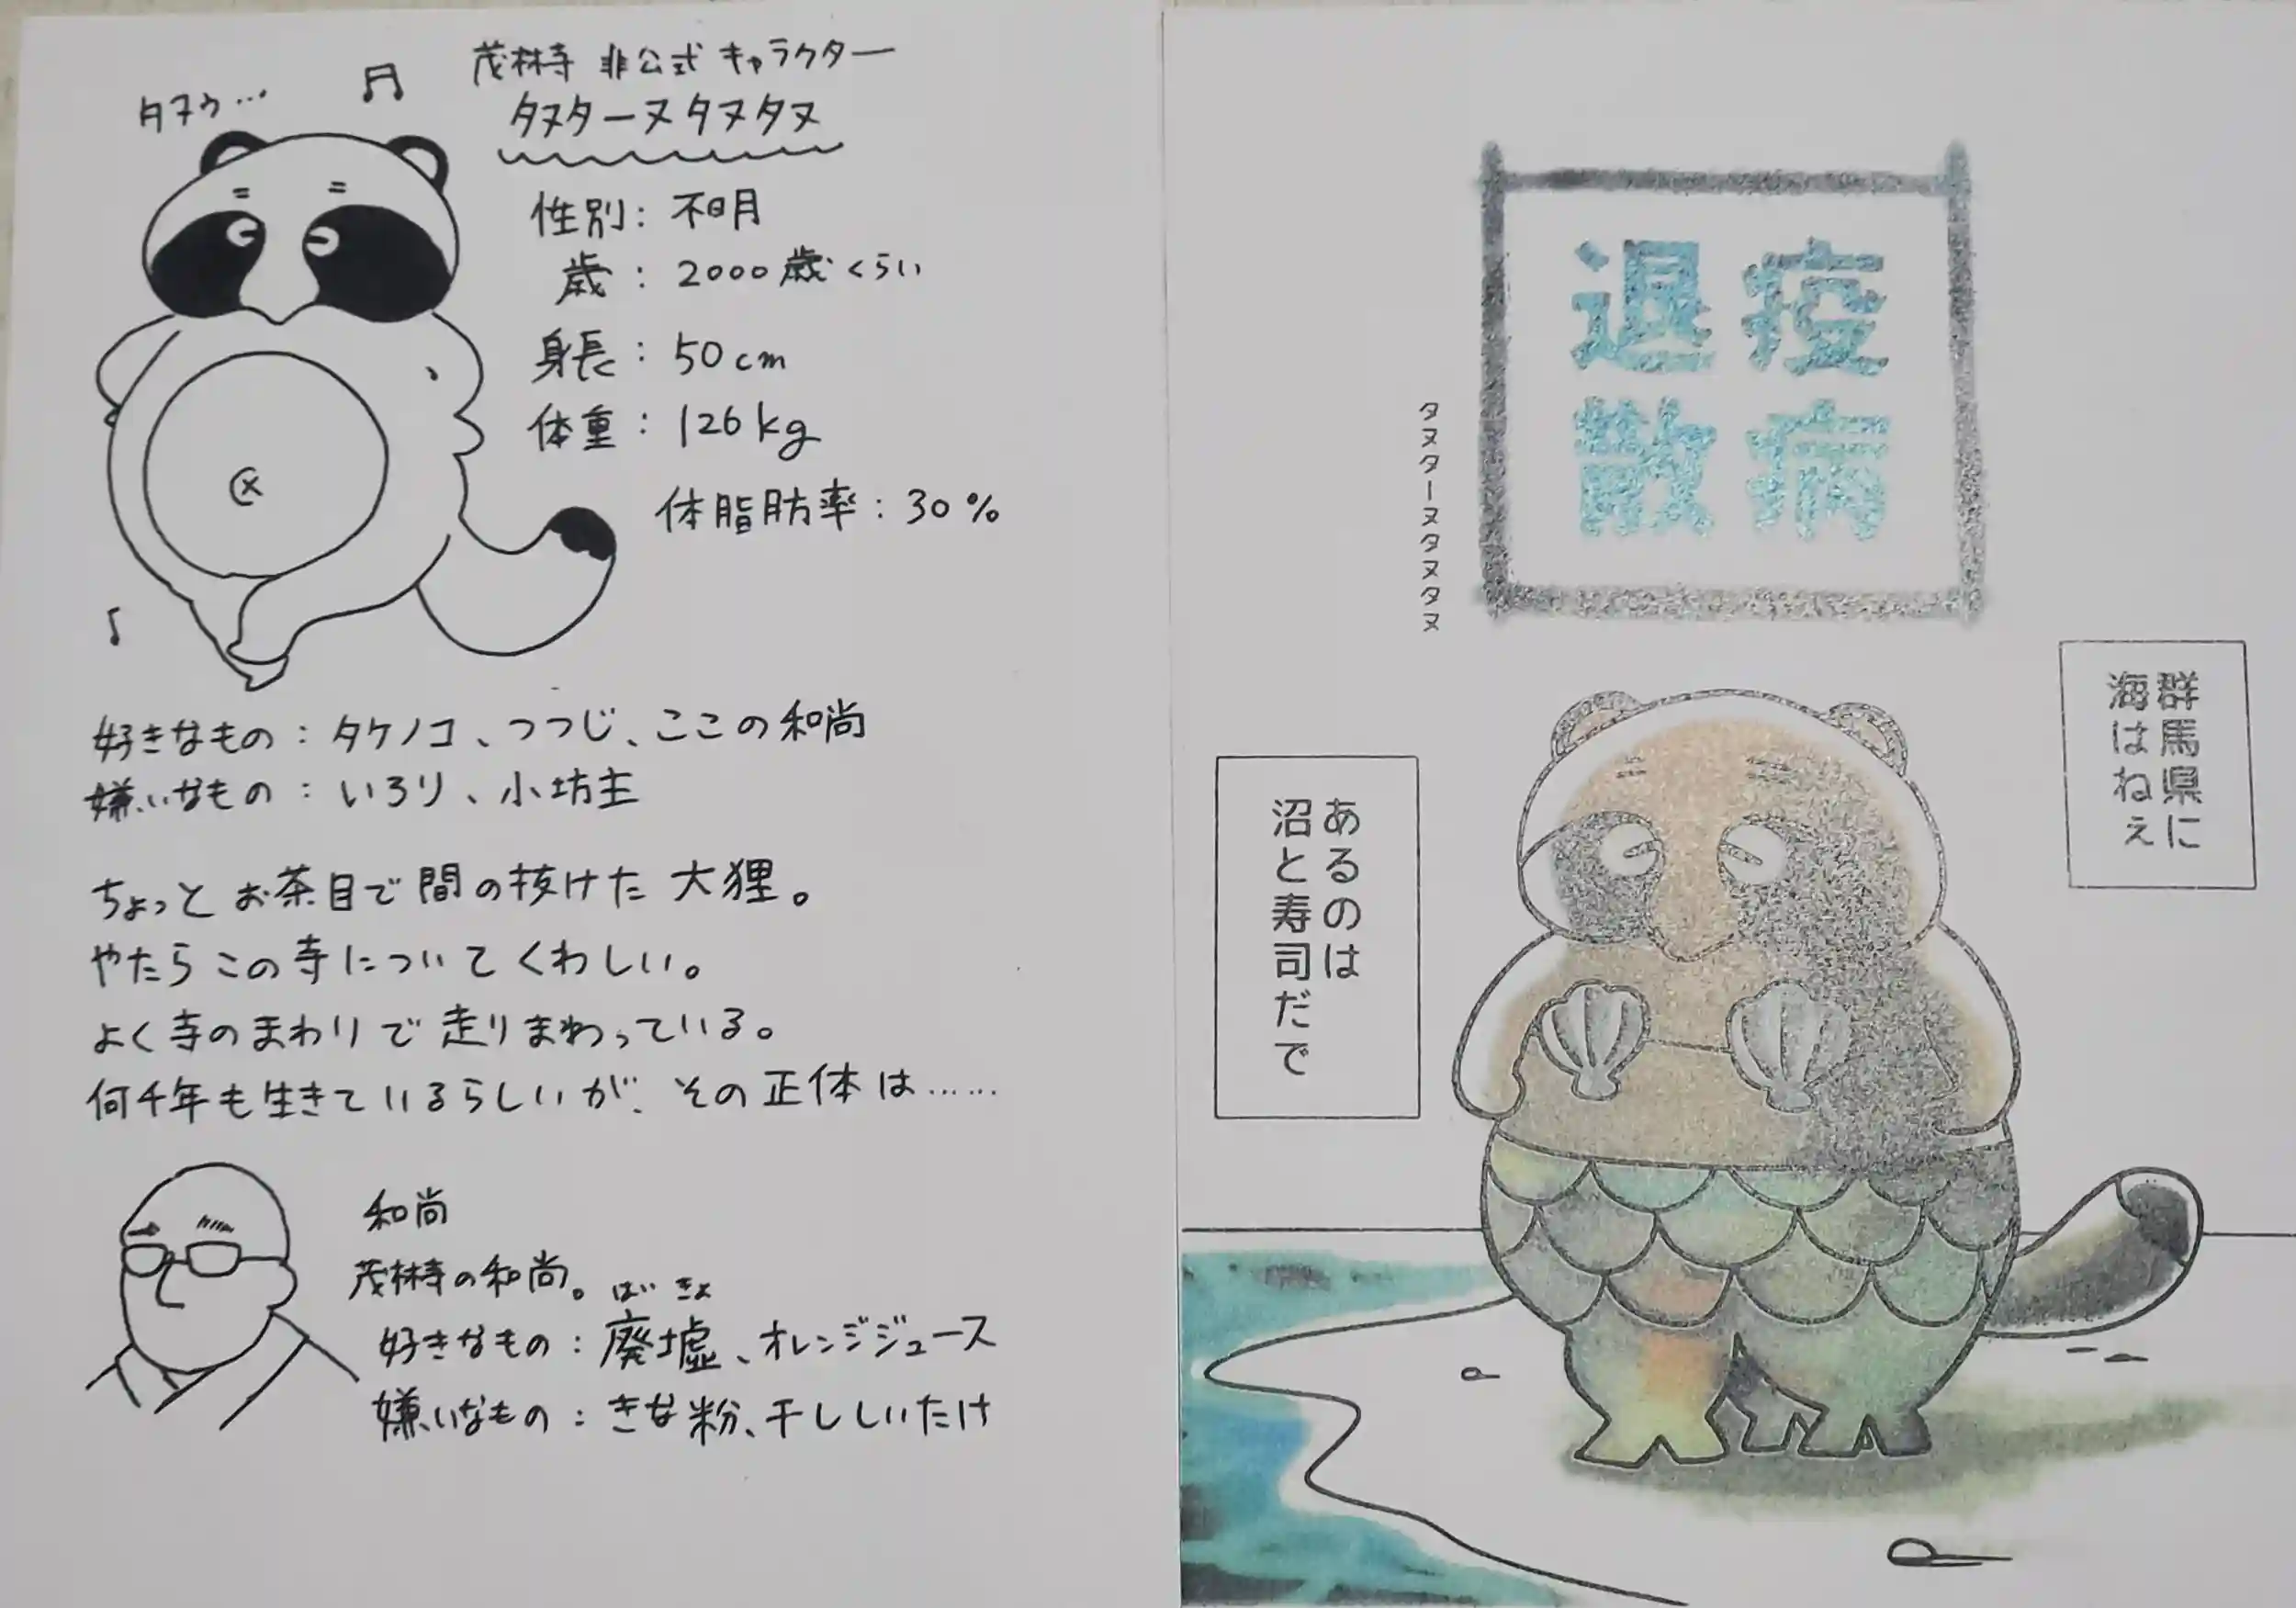 茂林寺 非公式キャラクター
タヌゥ…
タヌターヌタヌタヌ
性別：不明
歳：2000歳くらい
身長：50cm
体重：126kg
体脂肪率：30%
好きなもの：タケノコ、つつじ、ここの和尚
嫌いなもの：いろり、小坊主
ちょっとお茶目で間の抜けた大狸。
やたらこの寺についてくわしい。
よく寺のまわりで走りまわっている。
何千年も生きているらしいが、その正体は……
和尚
茂林寺の和尚。
ばいきょ
好きなもの：廃墟、オレンジジュース
嫌いなもの：きな粉、干ししいたけ
疫病
退散
タヌターヌタヌタヌ
群馬県に
海はねぇ
あるのは
沼と寿司だで